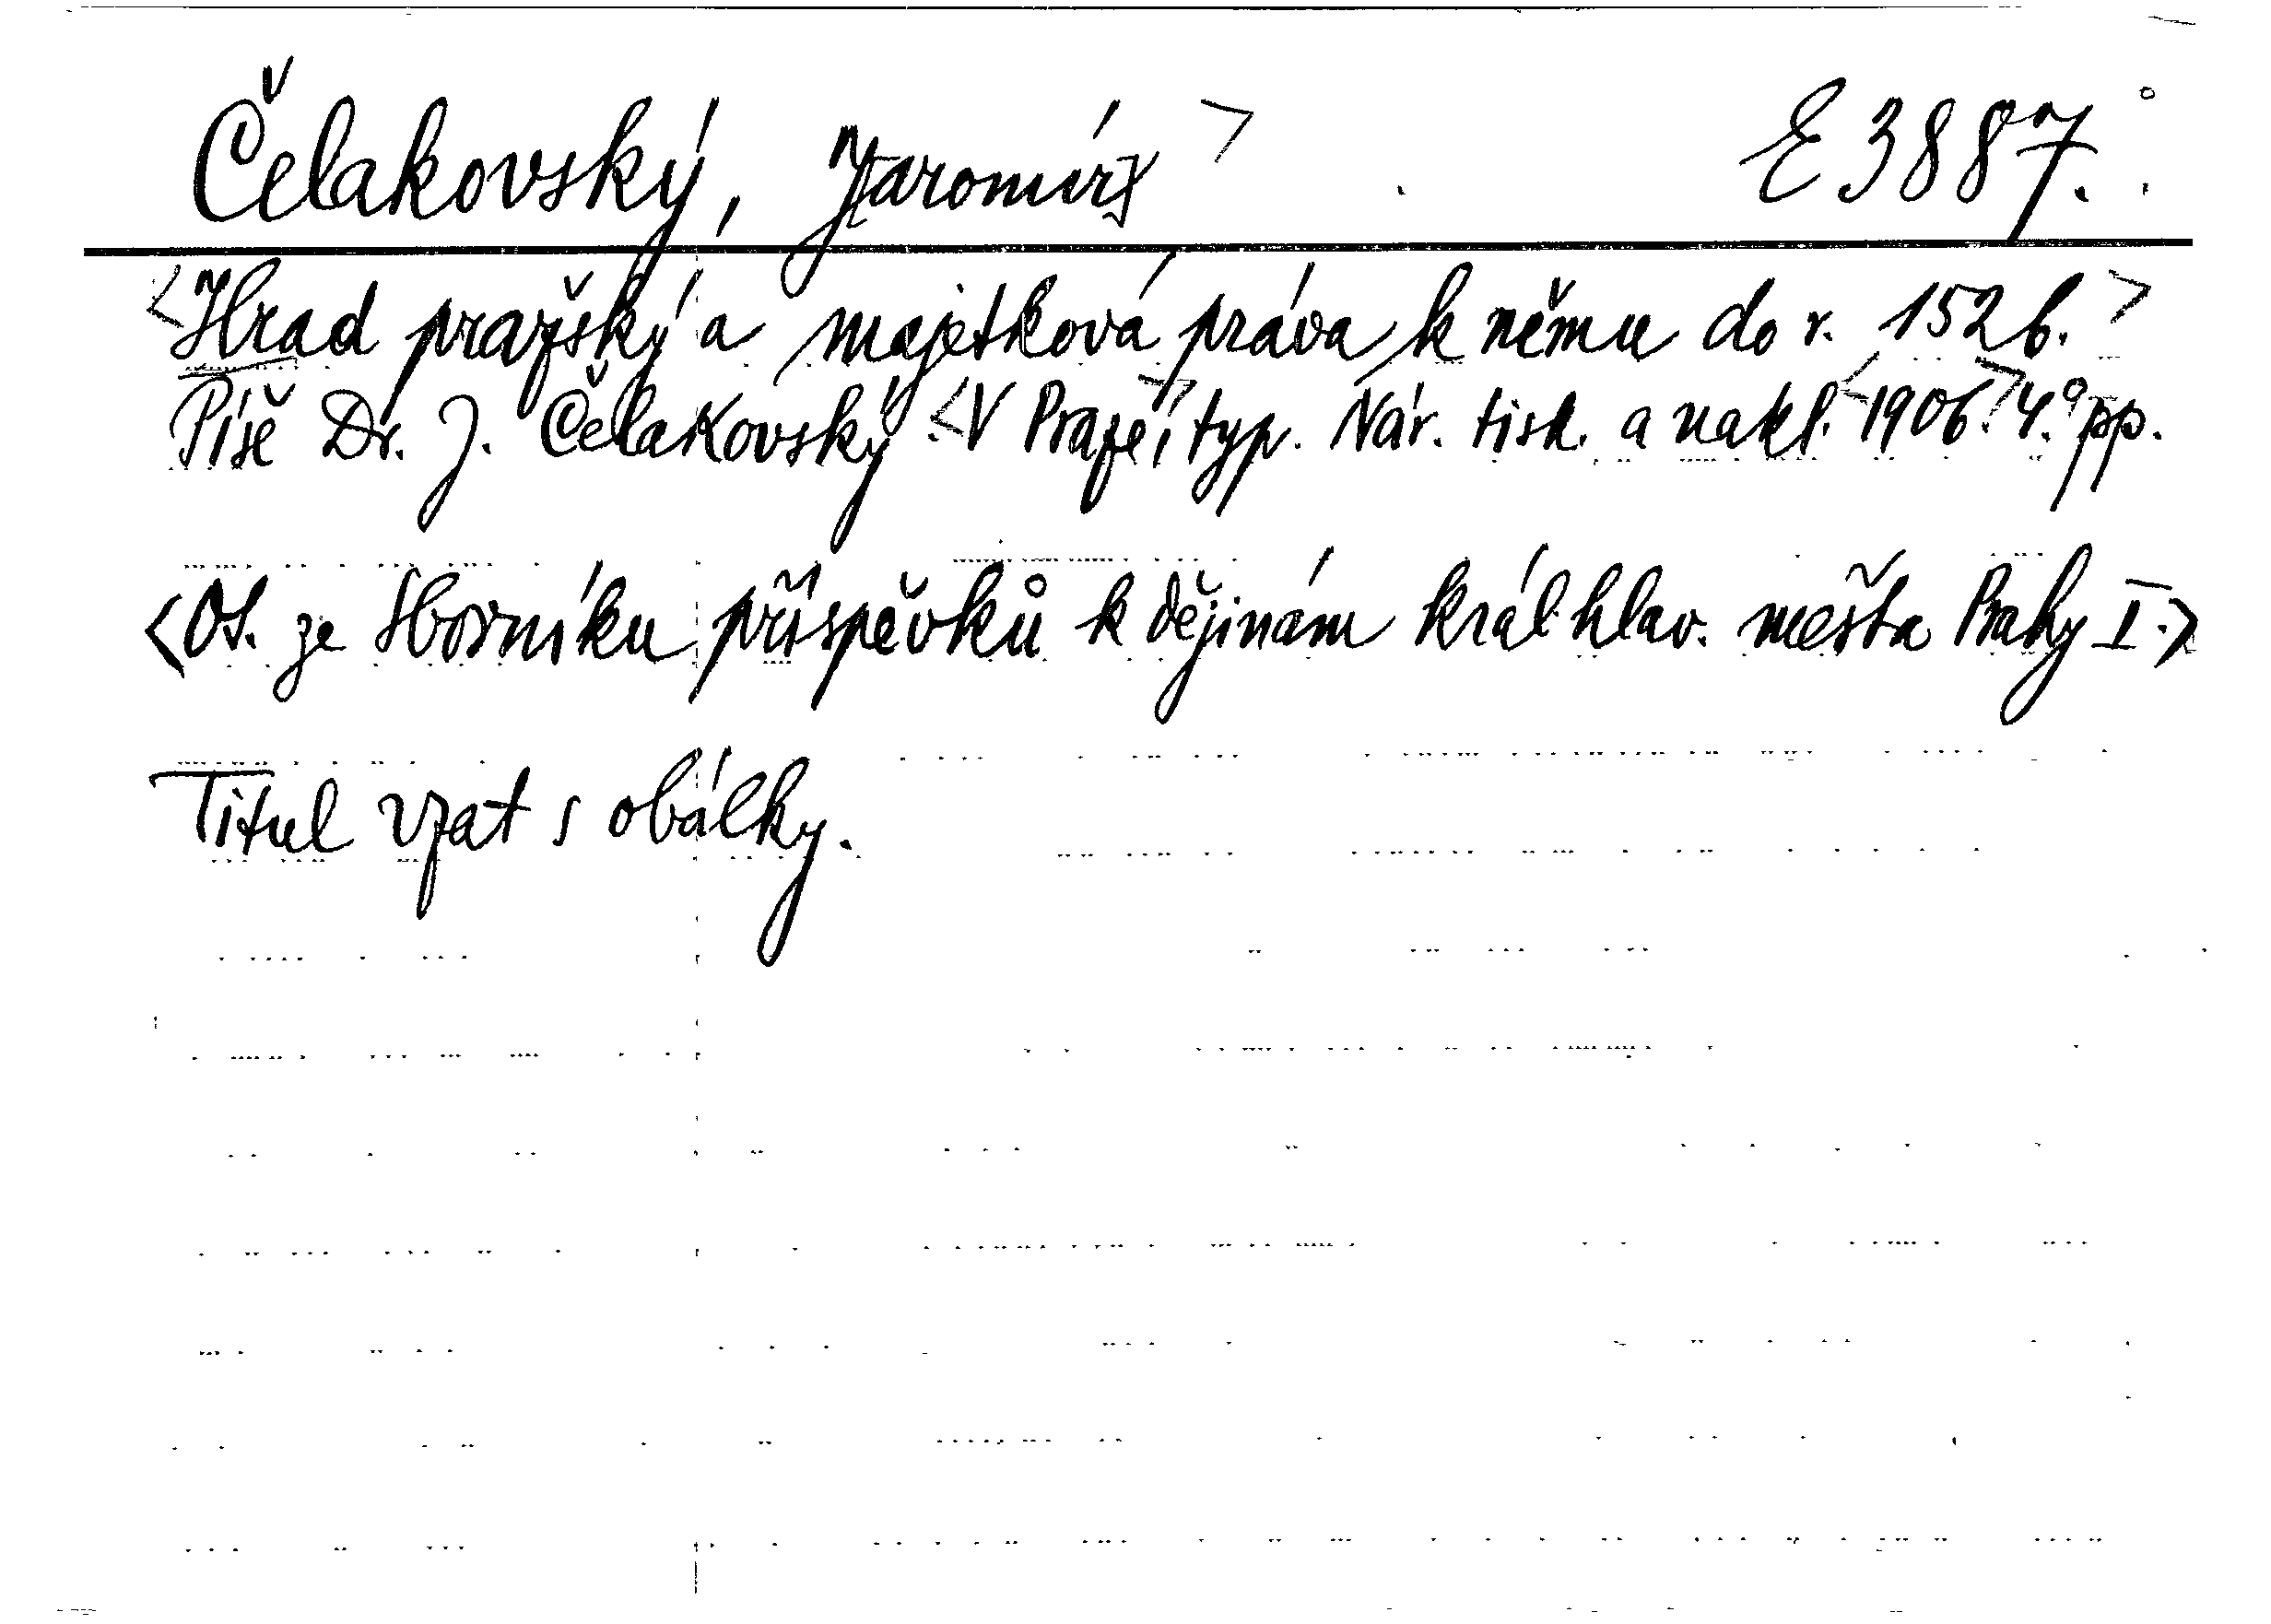 Čelakovský, J[aromír] > E 3887.
<Hrad pražský a majetková práva k němu do r. 1526.>
Píše Dr. J. Čelakovský. <V Praze,> typ. Nár. tisk. a nakl. <1906.> 4.° pp.
<Ot. ze Sborníku příspěvků k dějinám král. hlav. města Prahy I.>
Titul vzat s obálky.